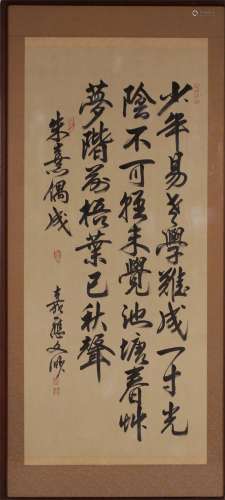 少年易老學難成一寸光
陰不可輕未覺池塘春草
夢階前梧葉已秋聲
朱熹偶成
嘉應文